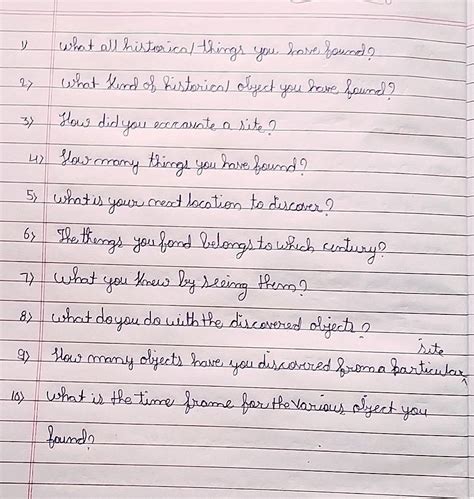 1) What all historical things you have found?
2) What kind of historical object you have found?
3) How did you excavate a site?
4) How many things you have found?
5) What is your next location to discover?
6) The things you fond belongs to which century?
7) What you knew by seeing them?
8) What do you do with the discovered objects?
site
9) How many objects have you discovered from a particular
10) What is the time frame for the various object you
found?